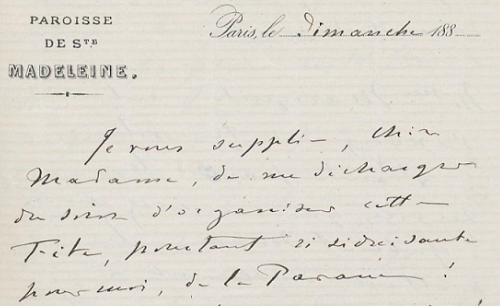 PAROISSE
DE STE
MADELEINE.
Paris, le Dimanche 188
Je vous supplie, chère
Madame, de me décharger
du soin d'organiser cette
Fête, pourtant si séduisante
pour moi, de la !